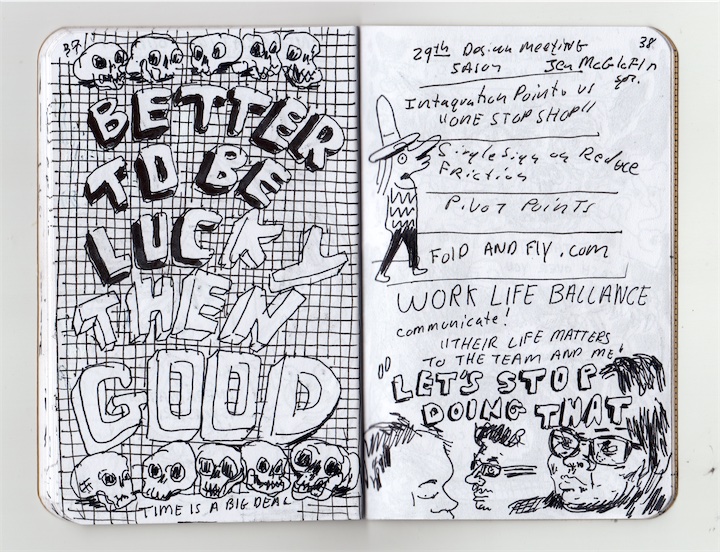 37
BETTER
TO BE
LUCKY
THEN
GOOD
TIME IS A BIG DEAL
38
29th Design Meeting
Integration Points vs
"ONE STOP SHOP"
Single Sign on Reduce
FRiction
PiVOT POINTS
FOLD AND FLY.com
WORK LIFE BALLANCE
communicate!
"THEIR LIFE MATTERS
TO THE TEAM AND ME"
"LET'S STOP
DOING THAT